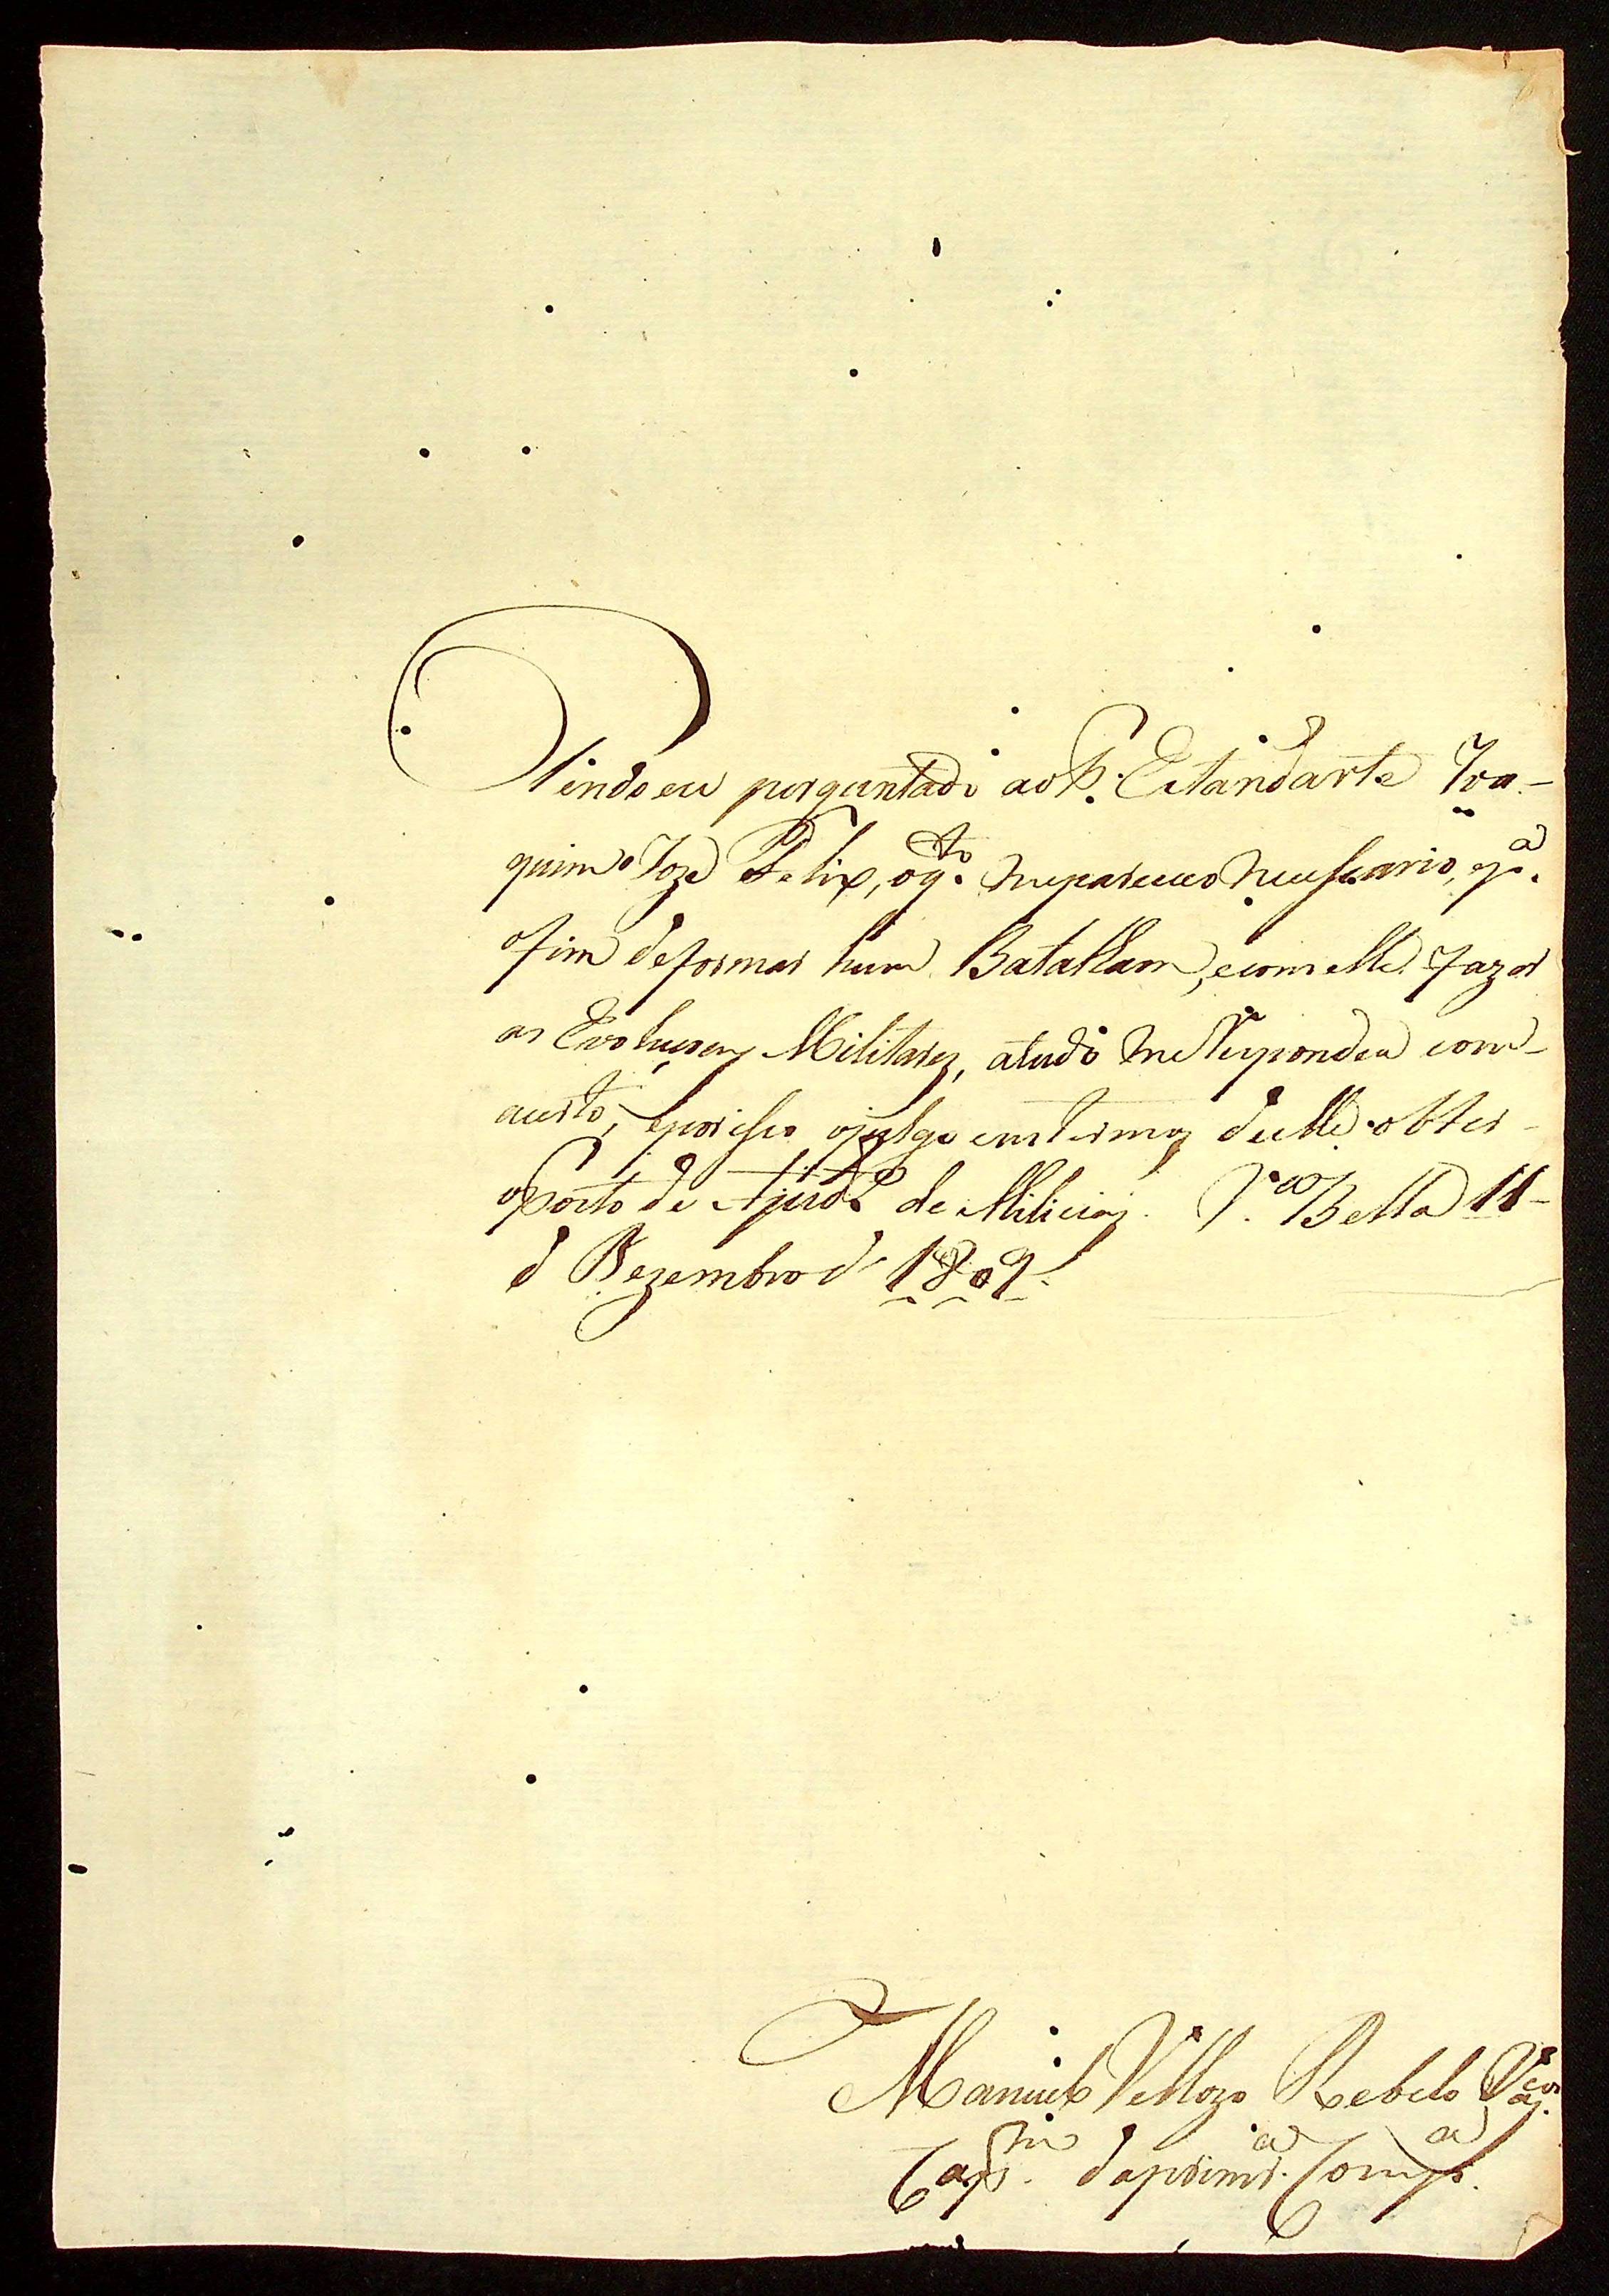 Tendo eu perguntado ao P. Estandarte Joa-
quim Joze Felix, oq.to mepareceo necessario, ep.a
ofim deformar hum Batalham, ecom elle fazer
as Evoluçoens Militares, atudo me Respondeu com-
acerto, eporisso ojulgo emtermos delle obter-
oPosto de Ajud.e de Milicias. V.a Bella 11-
d Dezembro d 1809.
Manuel Vellozo Rebelo Vas.cos
Cap.m daprimr.a Comp.a